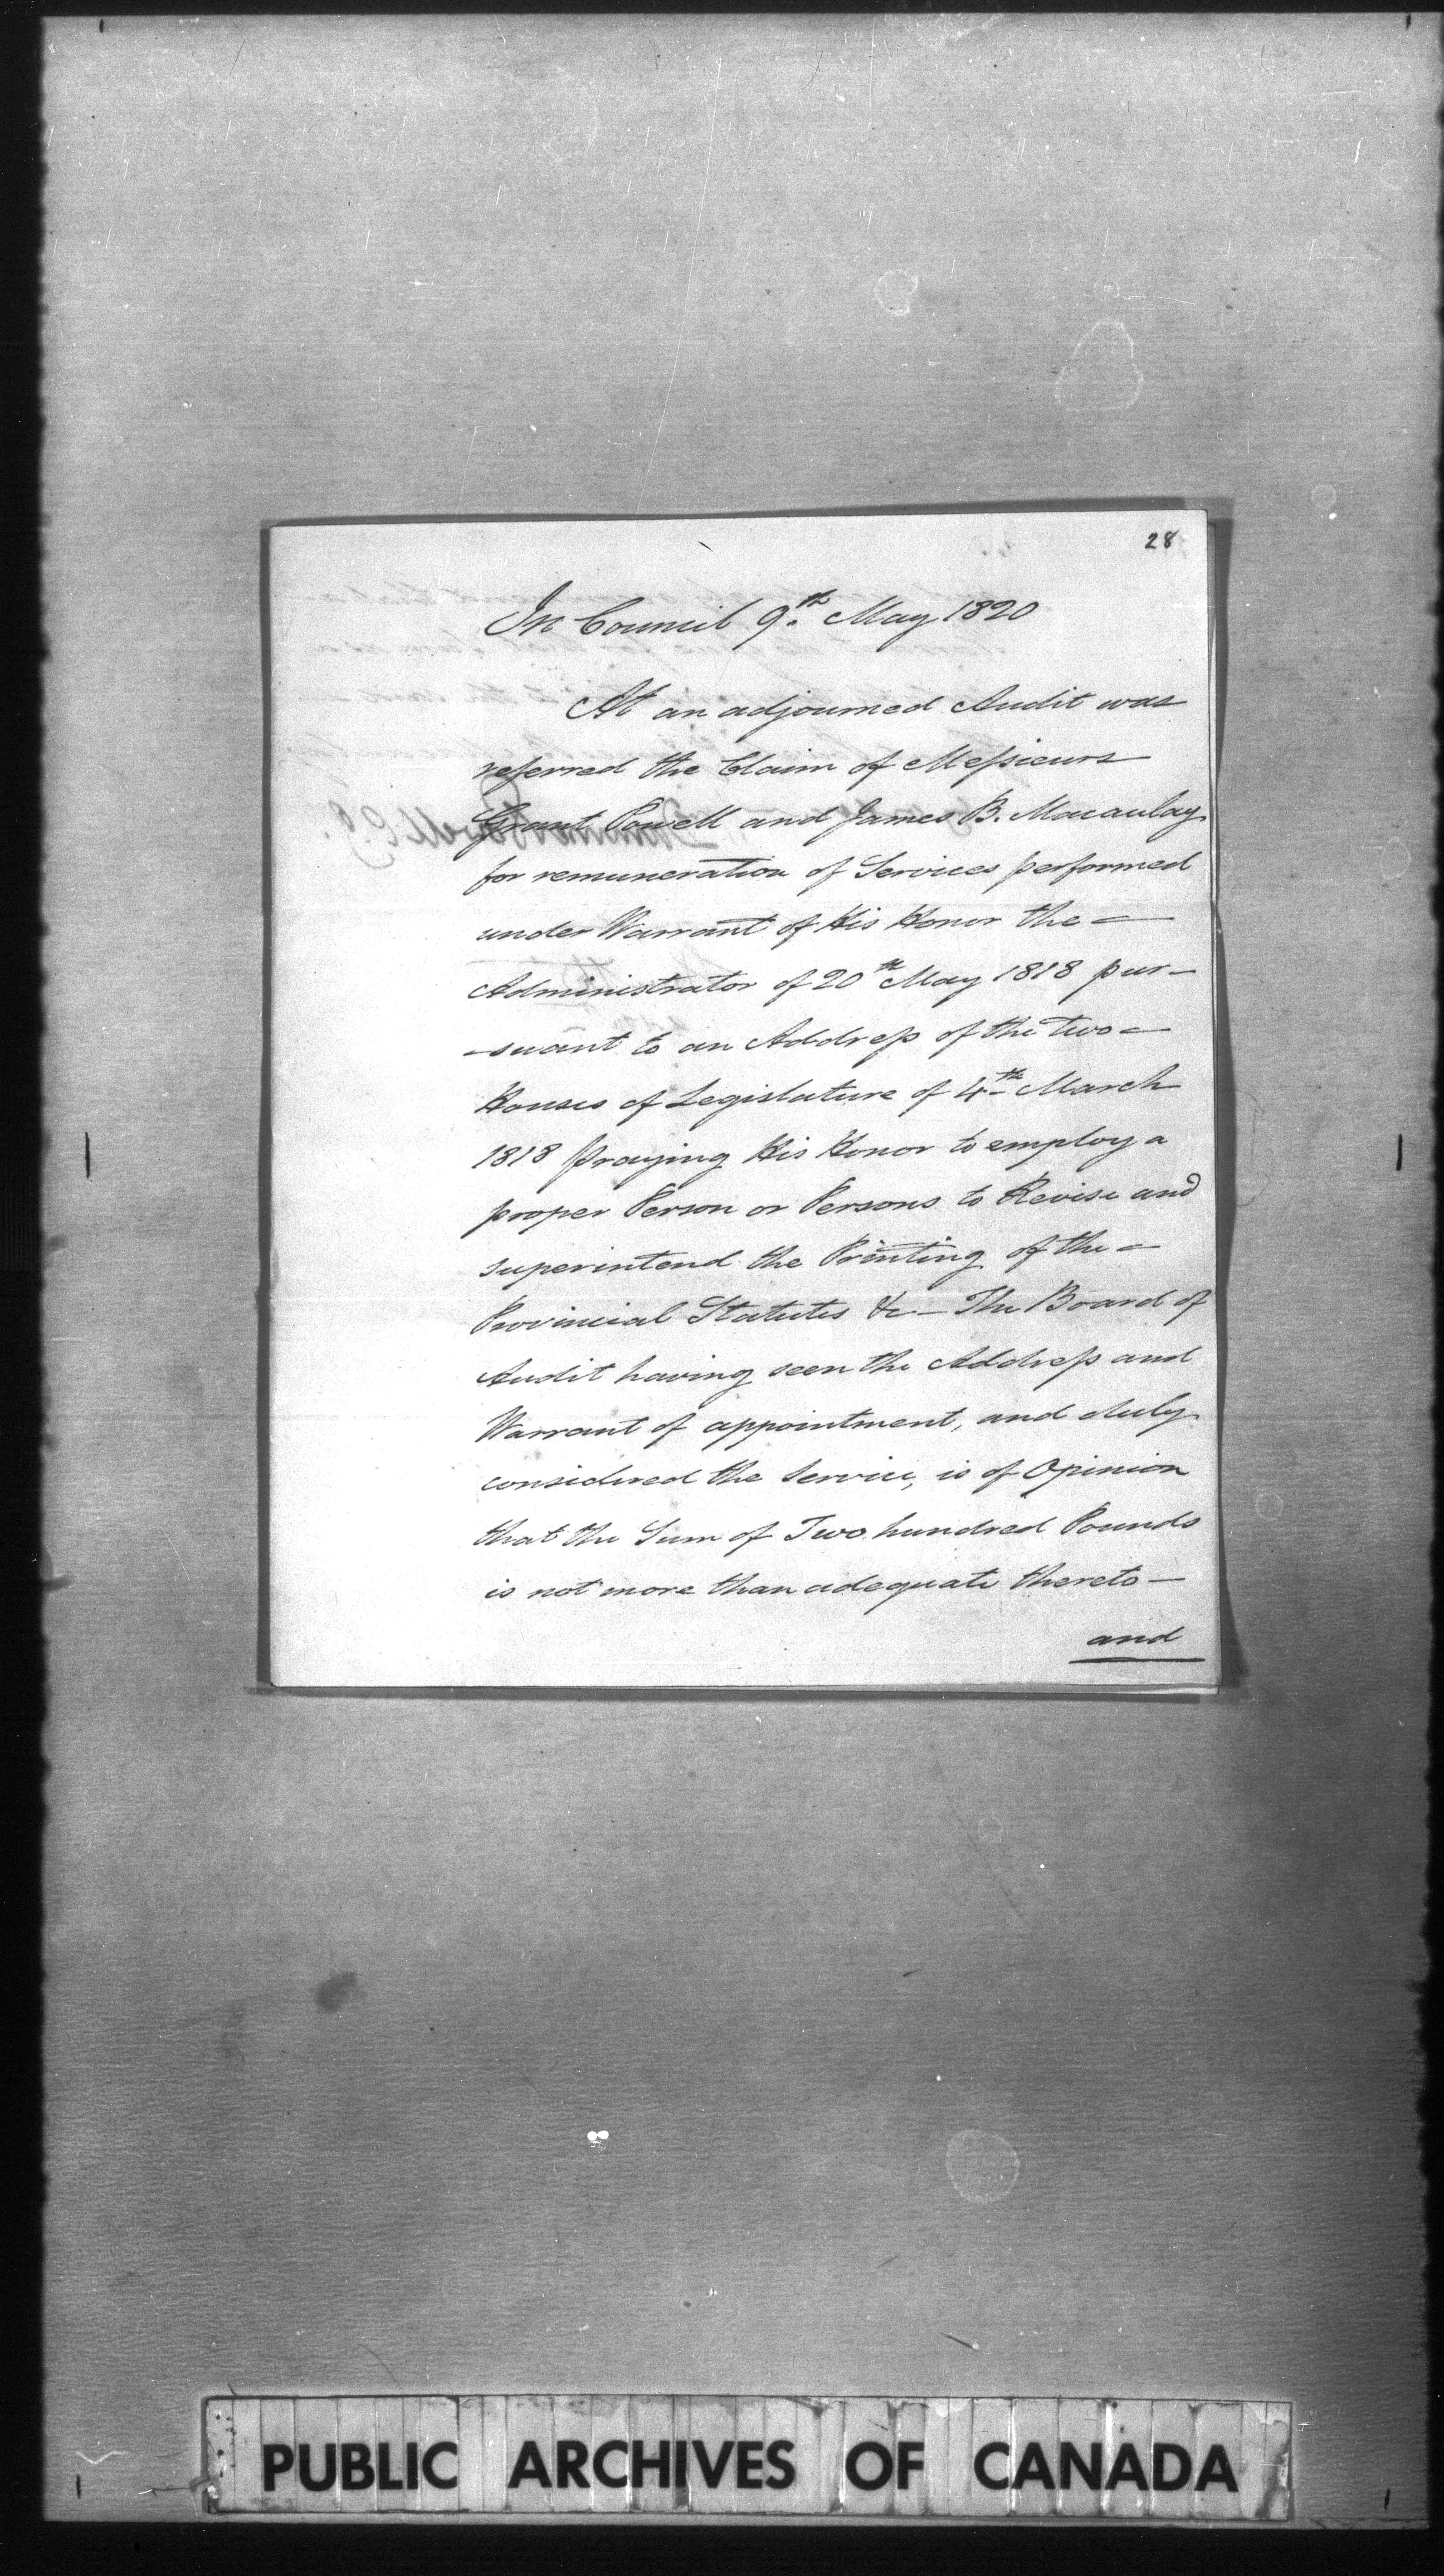 28
In Council 9th May 1820
At an adjourned Audit was
referred the Claim of Messieurs
Grant Powell and James B. Macaulay
for remuneration of Services performed
under Warrant of His Honor the —
Administrator of 20th May 1818 pur-
-suant to an Address of the Two —
Houses of Legislature of 4th March
1818 praying His Honor to employ a
proper Person or Persons to Revise and
superintend the Printing of the —
Provincial Statutes &c — The Board of
Audit having seen the Address and
Warrant of appointment, and duly
considered the Service, is of Opinion
that the Sum of Two hundred Pounds
is not more than adequate thereto —
and
PUBLIC ARCHIVES OF CANADA